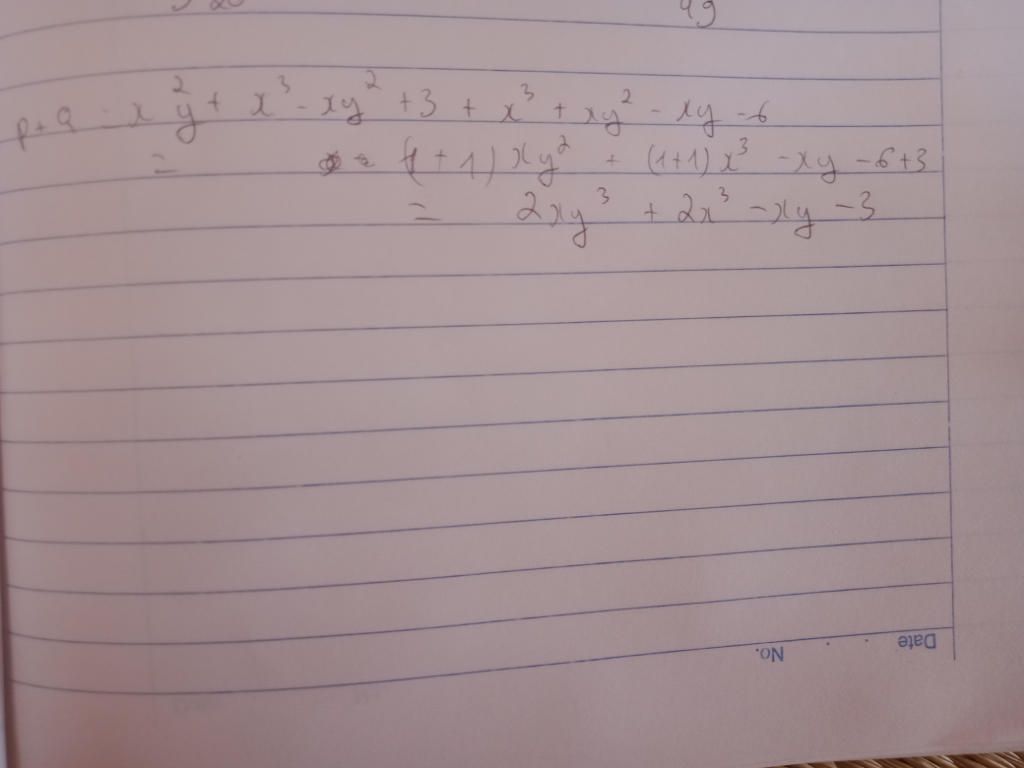 49
p+q = x²y + x³ - xy² + 3 + x³ + xy² - xy - 6
= = (1+1)xy² + (1+1)x³ - xy - 6+3
= 2xy³ + 2x³ - xy - 3
Date . . .
No.